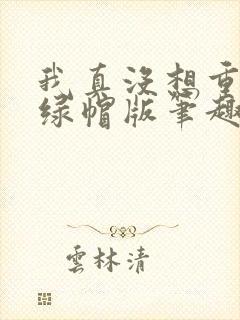 我真没想重
绿帽版笔趣
雲林清